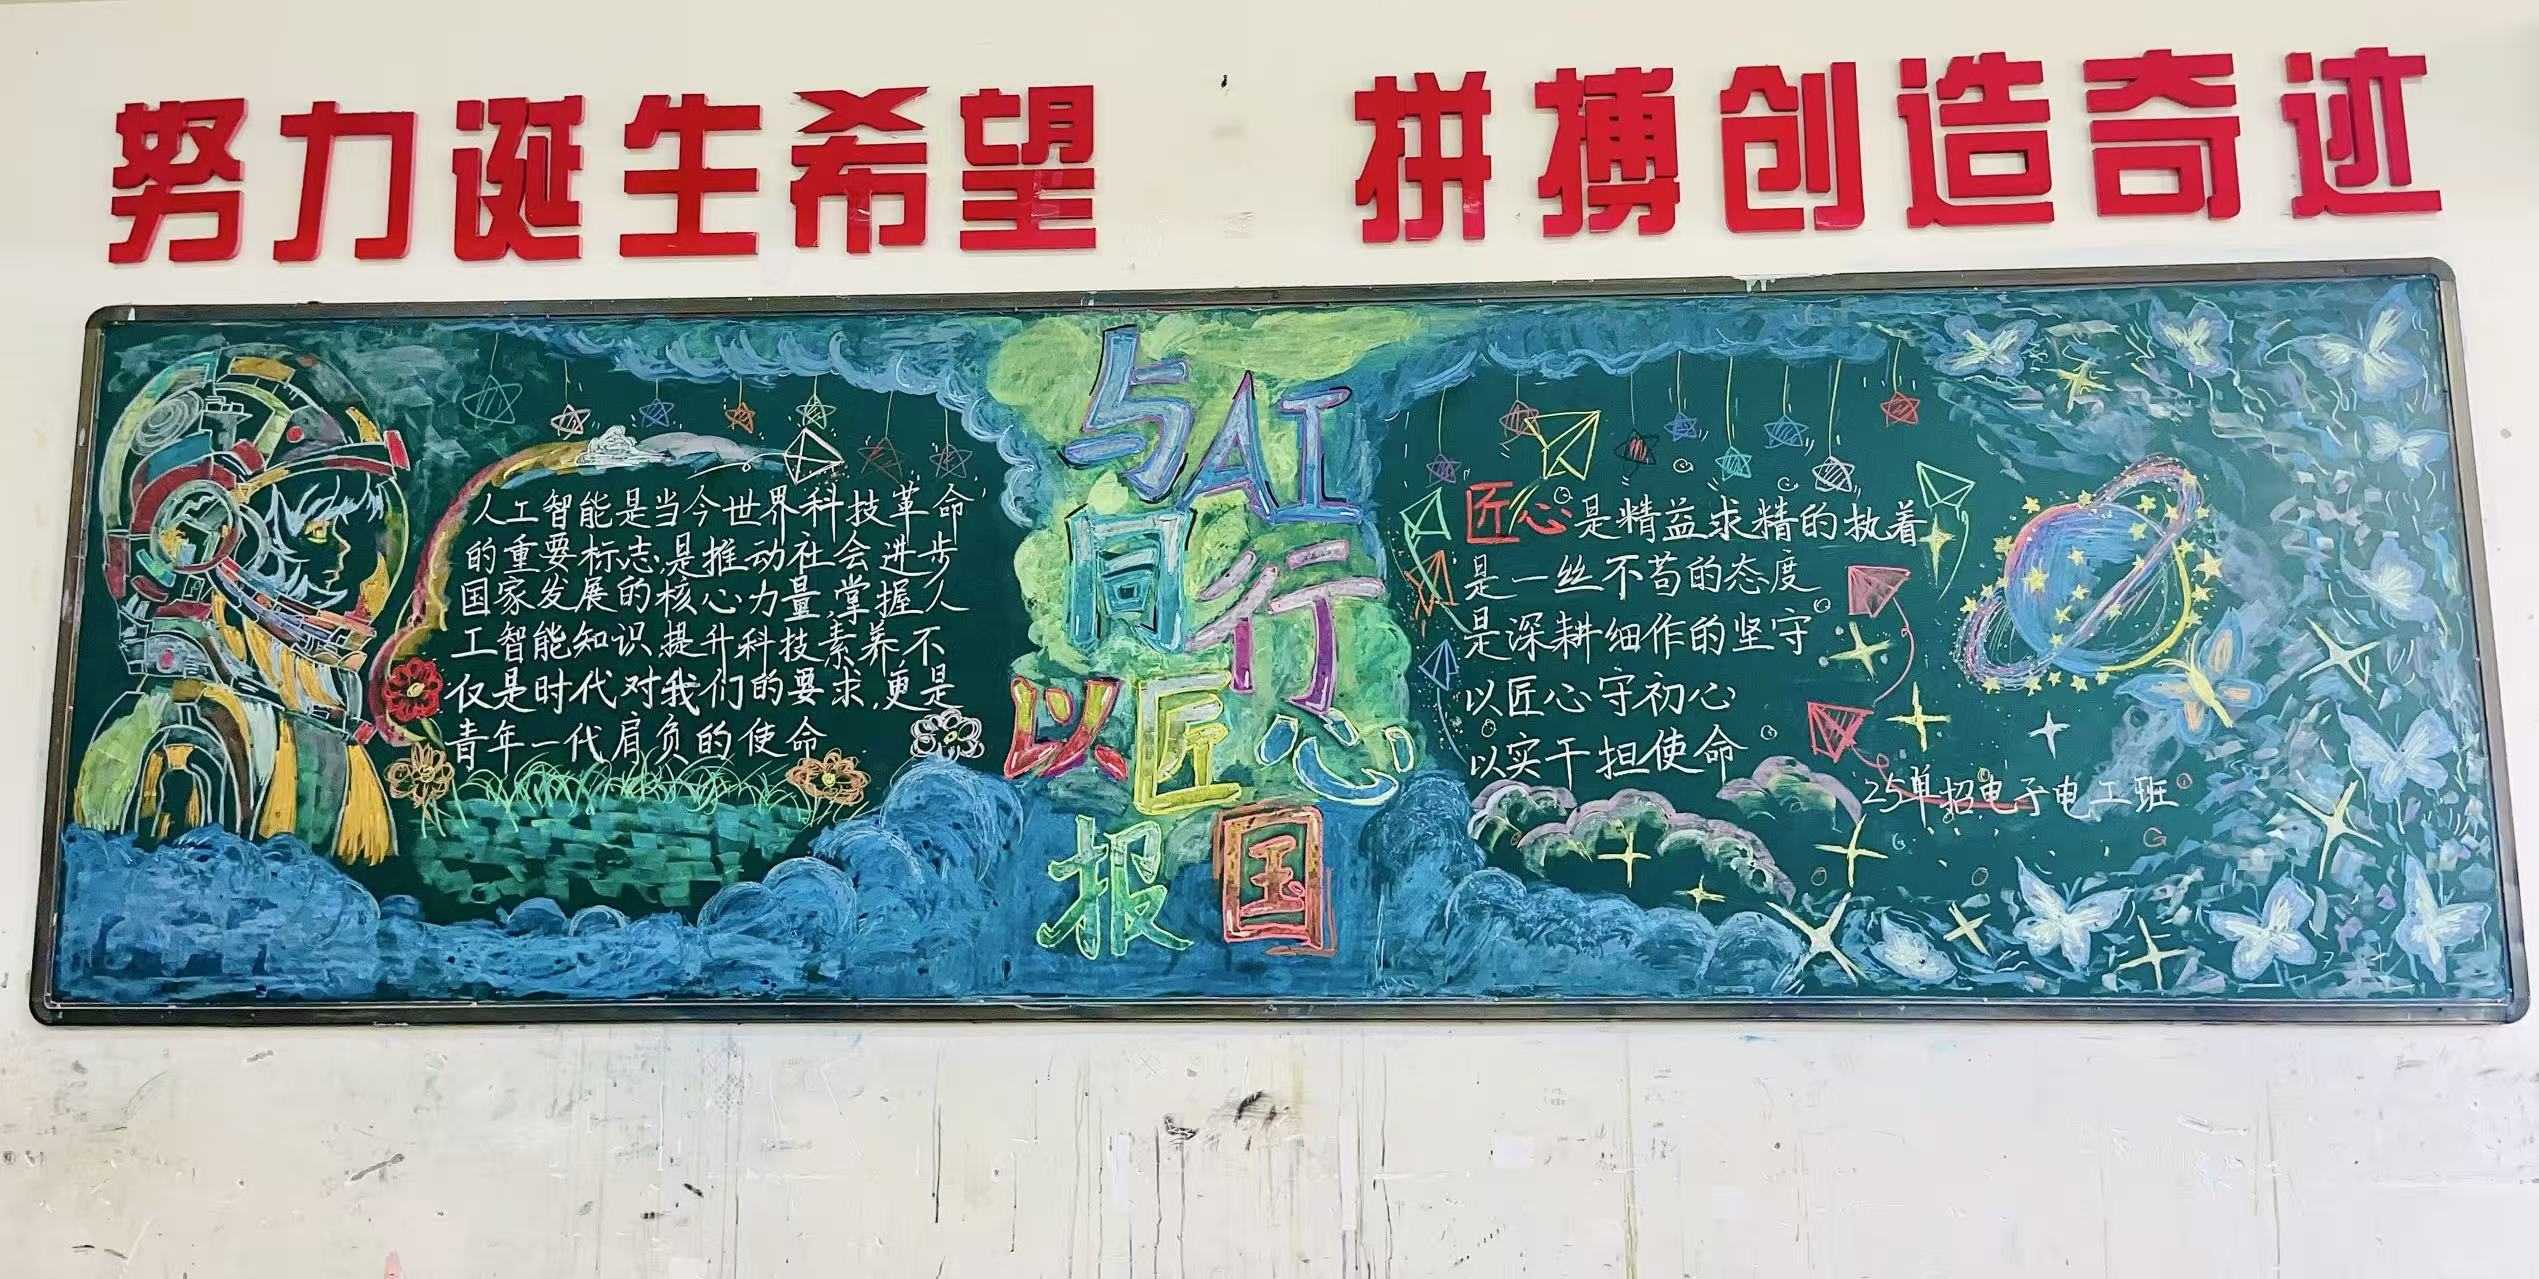 努力诞生希望 拼搏创造奇迹
人工智能是当今世界科技革命
的重要标志,是推动社会进步
国家发展的核心力量,掌握人
工智能知识,提升科技素养,不
仅是时代对我们的要求,更是
青年一代肩负的使命
与AI
同行
以匠心
报国
匠心是精益求精的执着
是一丝不苟的态度
是深耕细作的坚守
以匠心守初心
以实干担使命
25单招电子电工班